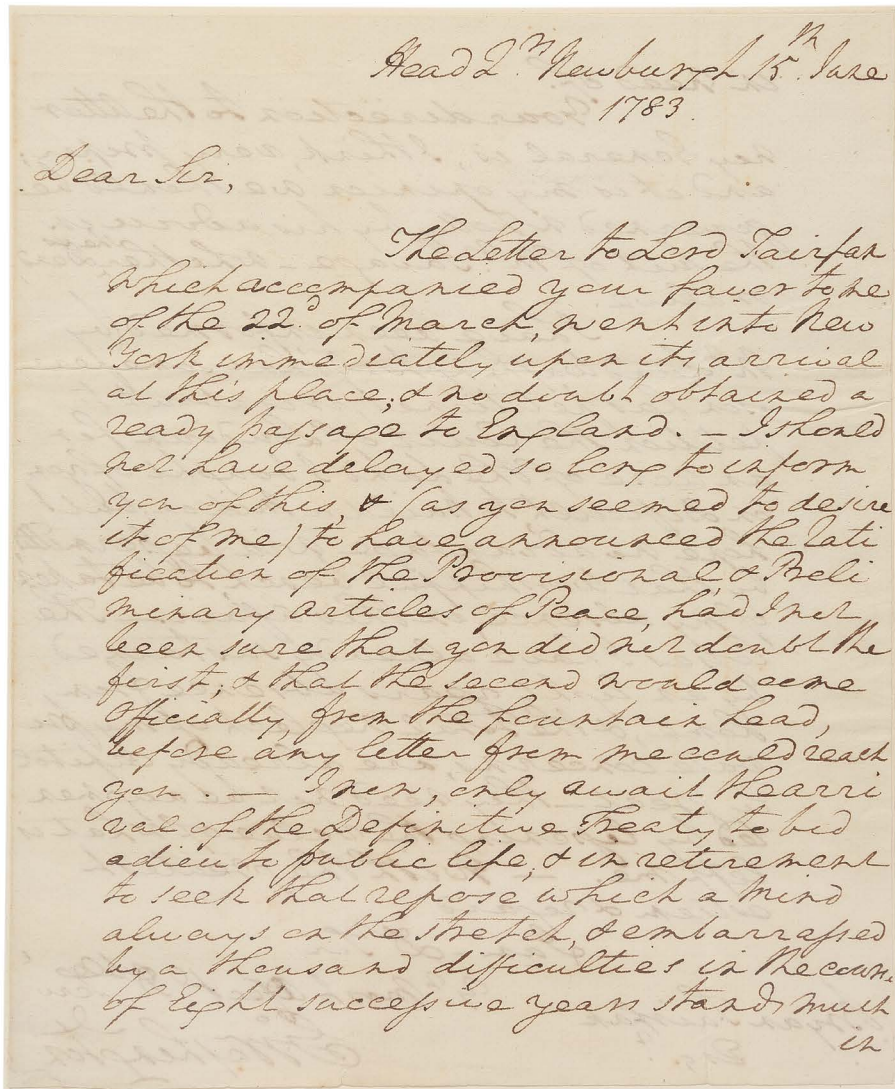 Head Qrs Newburgh 15th June
1783.
Dear Sir,
The Letter to Lord Fairfax
which accompanied your favor to me
of the 22d of March, went into New
York immediately upon its arrival
at this place; & no doubt obtained a
ready passage to England. — I should
not have delayed so long to inform
you of this, & (as you seemed to desire
it of me) to have announced the rati
fication of the Provisional & Preli
minary articles of Peace, had I not
been sure that you did not doubt the
first; & that the second would come
officially from the fountain head,
before any letter from me could reach
you. — I now, only await the arri
val of the Definitive Treaty, to bid
adieu to public life, & in retirement
to seek that repose which a mind
always on the stretch, & embarrassed
by a thousand difficulties in the course
of Eight successive years stands much
in